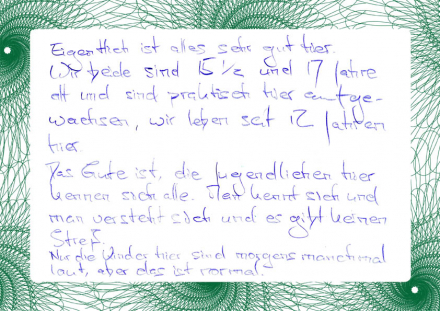 Eigentlich ist alles sehr gut hier.
Wir beide sind 15 1/2 und 17 Jahre
alt und sind praktisch hier aufge-
wachsen, wir leben seit 12 Jahren
hier
Das Gute ist, die Jugendlichen hier
kennen sich alle. Man kennt sich und
man versteht sich und es gibt keinen
Streß.
Nur die Kinder hier sind morgens manchmal
laut, aber das ist normal.